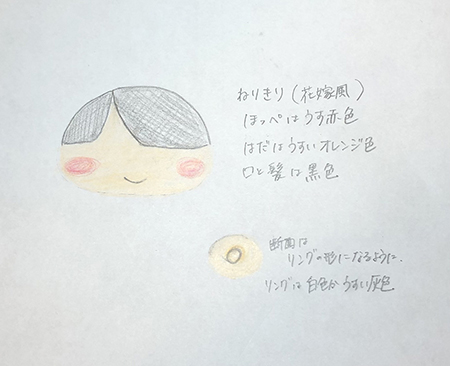 ねりきり（花嫁風）
ほっぺはうす赤色
はだはうすいオレンジ色
口と髪は黒色
断面は
リングの形になるように．
リングは白色かうすい灰色